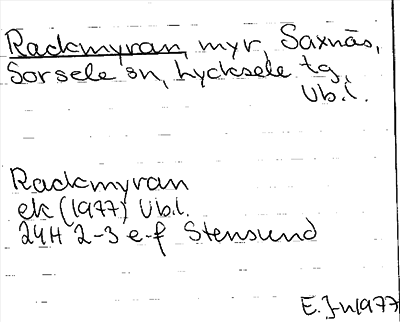 Rackmyran, myr, Saxnäs,
Sorsele sn, Lycksele tg,
Vb.l.
Rackmyran
ek (1977) Vb.l.
24H 2-3 e-f Stensund
E.J-n 1977